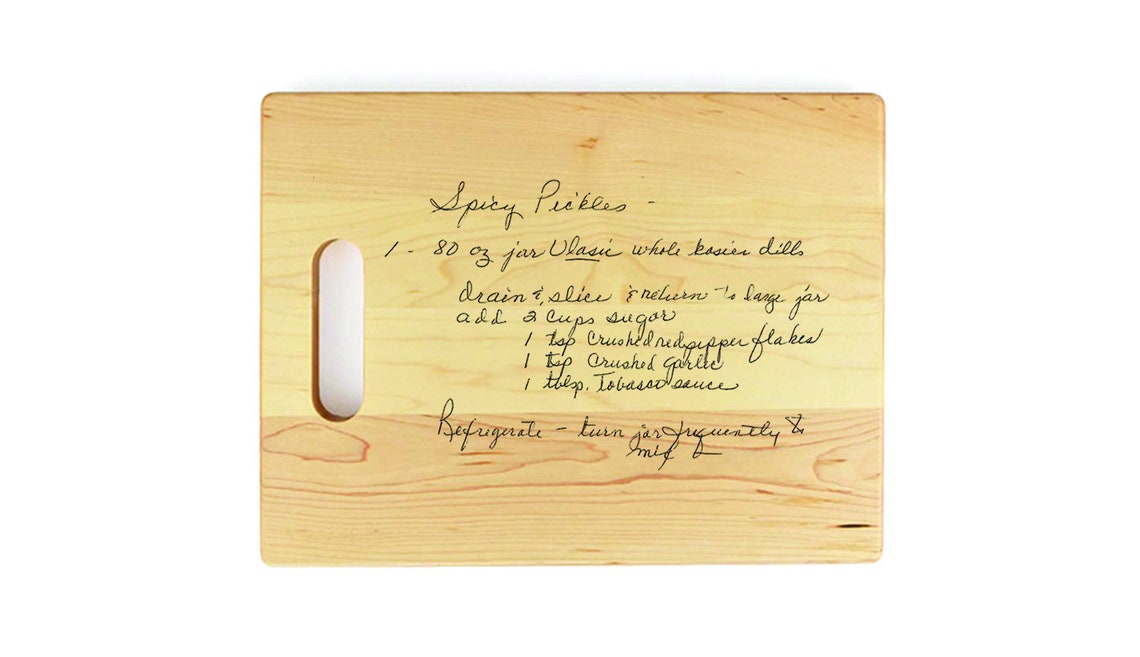 Spicy Pickles -
1 - 80 oz jar Vlasic whole kosier dills
drain & slice & return to large jar
add 2 cups sugar
1 tsp crushed red pepper flakes
1 tsp crushed garlic
1 tblsp. Tobasco sauce
Refrigerate - turn jar frequently to
mix